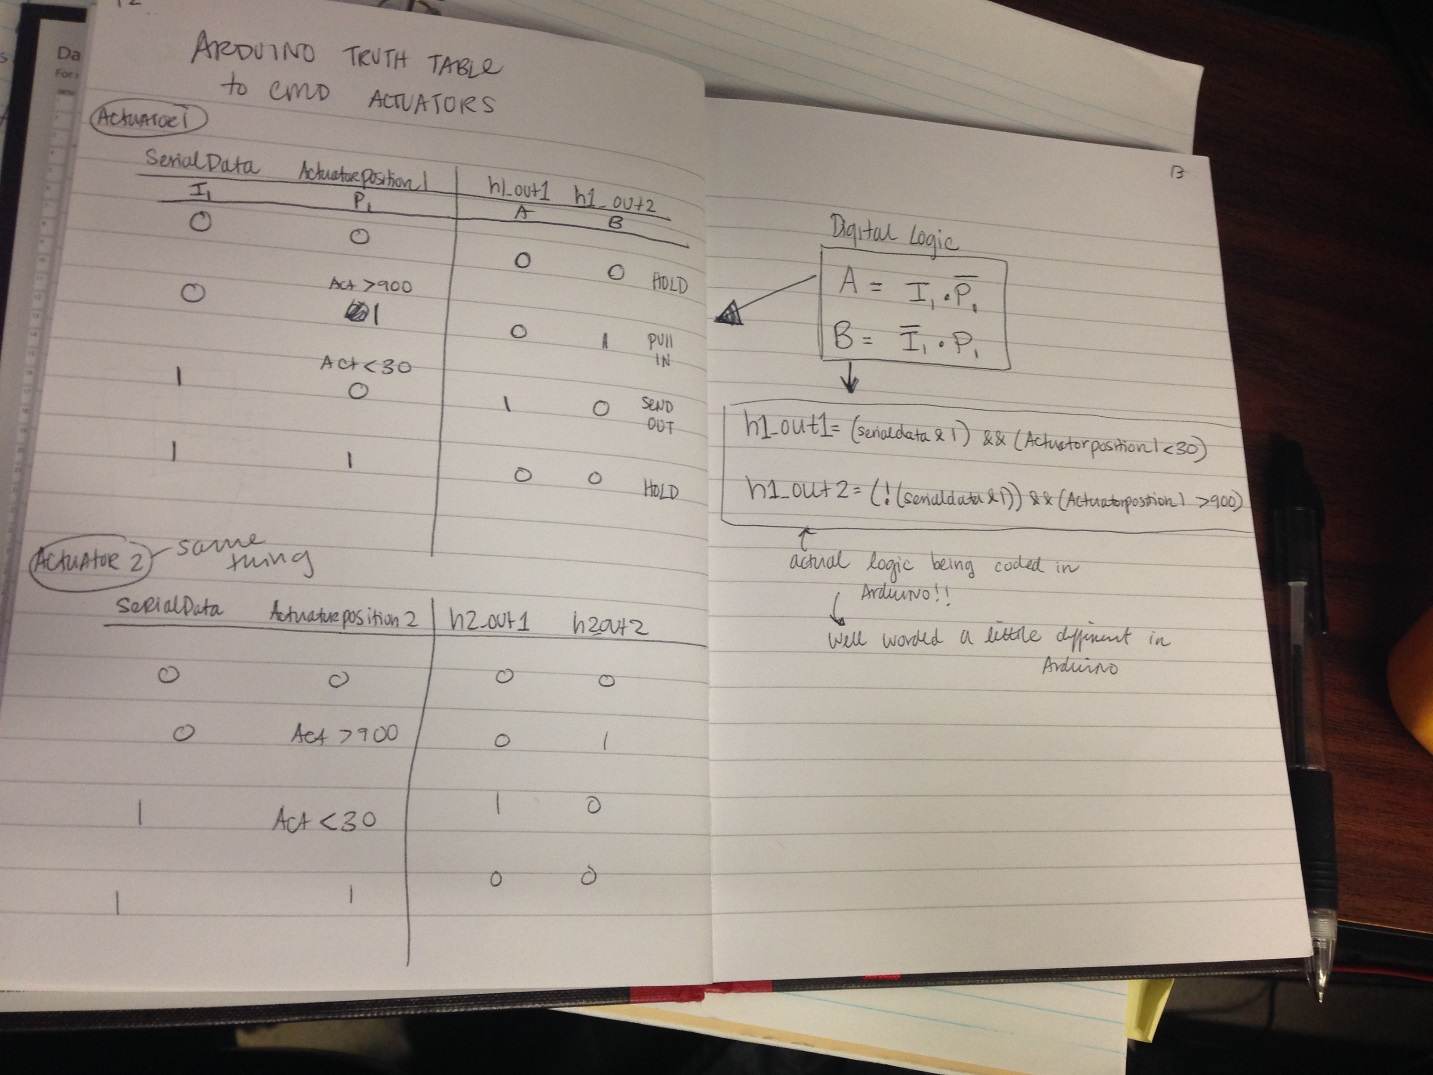 ARDUINO TRUTH TABLE
to CMD ACTUATORS
ACTUATOR 1
SerialData Actuatorposition1 h1_out1 h1_out2
I₁ P₁ A B
0 0 0 0 HOLD
0 Act >900 1 0 1 PUll IN
1 Act <30 0 1 0 SEND OUT
1 1 0 0 HOLD
ACTUATOR 2 same thing
SerialData Actuatorposition2 h2_out1 h2out2
0 0 0 0
0 Act >900 0 1
1 Act <30 1 0
1 1 0 0
13
Digital Logic
A = I₁ · P̅₁
B = I̅₁ · P₁
h1_out1= (serialdata & 1) && (Actuatorposition1<30)
h1_out2= (!(serialdata&1)) && (Actuatorpostion1 >900)
actual logic being coded in
Arduino!!
Well worded a little different in
Arduino